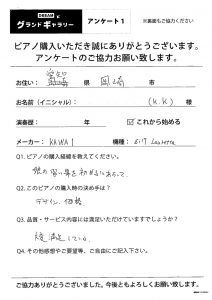 DREAM K
グランドギャラリー アンケート1 ※裏面もご協力ください
ピアノ購入いただき誠にありがとうございます。
アンケートのご協力お願い致します。
お住い： 愛知 県 岡崎 市
お名前（イニシャル）： （K.K） 様
演奏歴： 年 ☑ これから始める
メーカー： KAWAI 機種：
Q1. ピアノの購入経緯を教えてください。
娘の習い事を初めるにあたって。
Q2. このピアノの購入時の決め手は？
デザイン、価格
Q3. 品質・サービス内容には満足いただけていますでしょうか？
大変満足している。
Q4. その他感想やご要望等、ご自由にご記入下さい。
ご協力ありがとうございました。今後ともよろしくお願い致します。